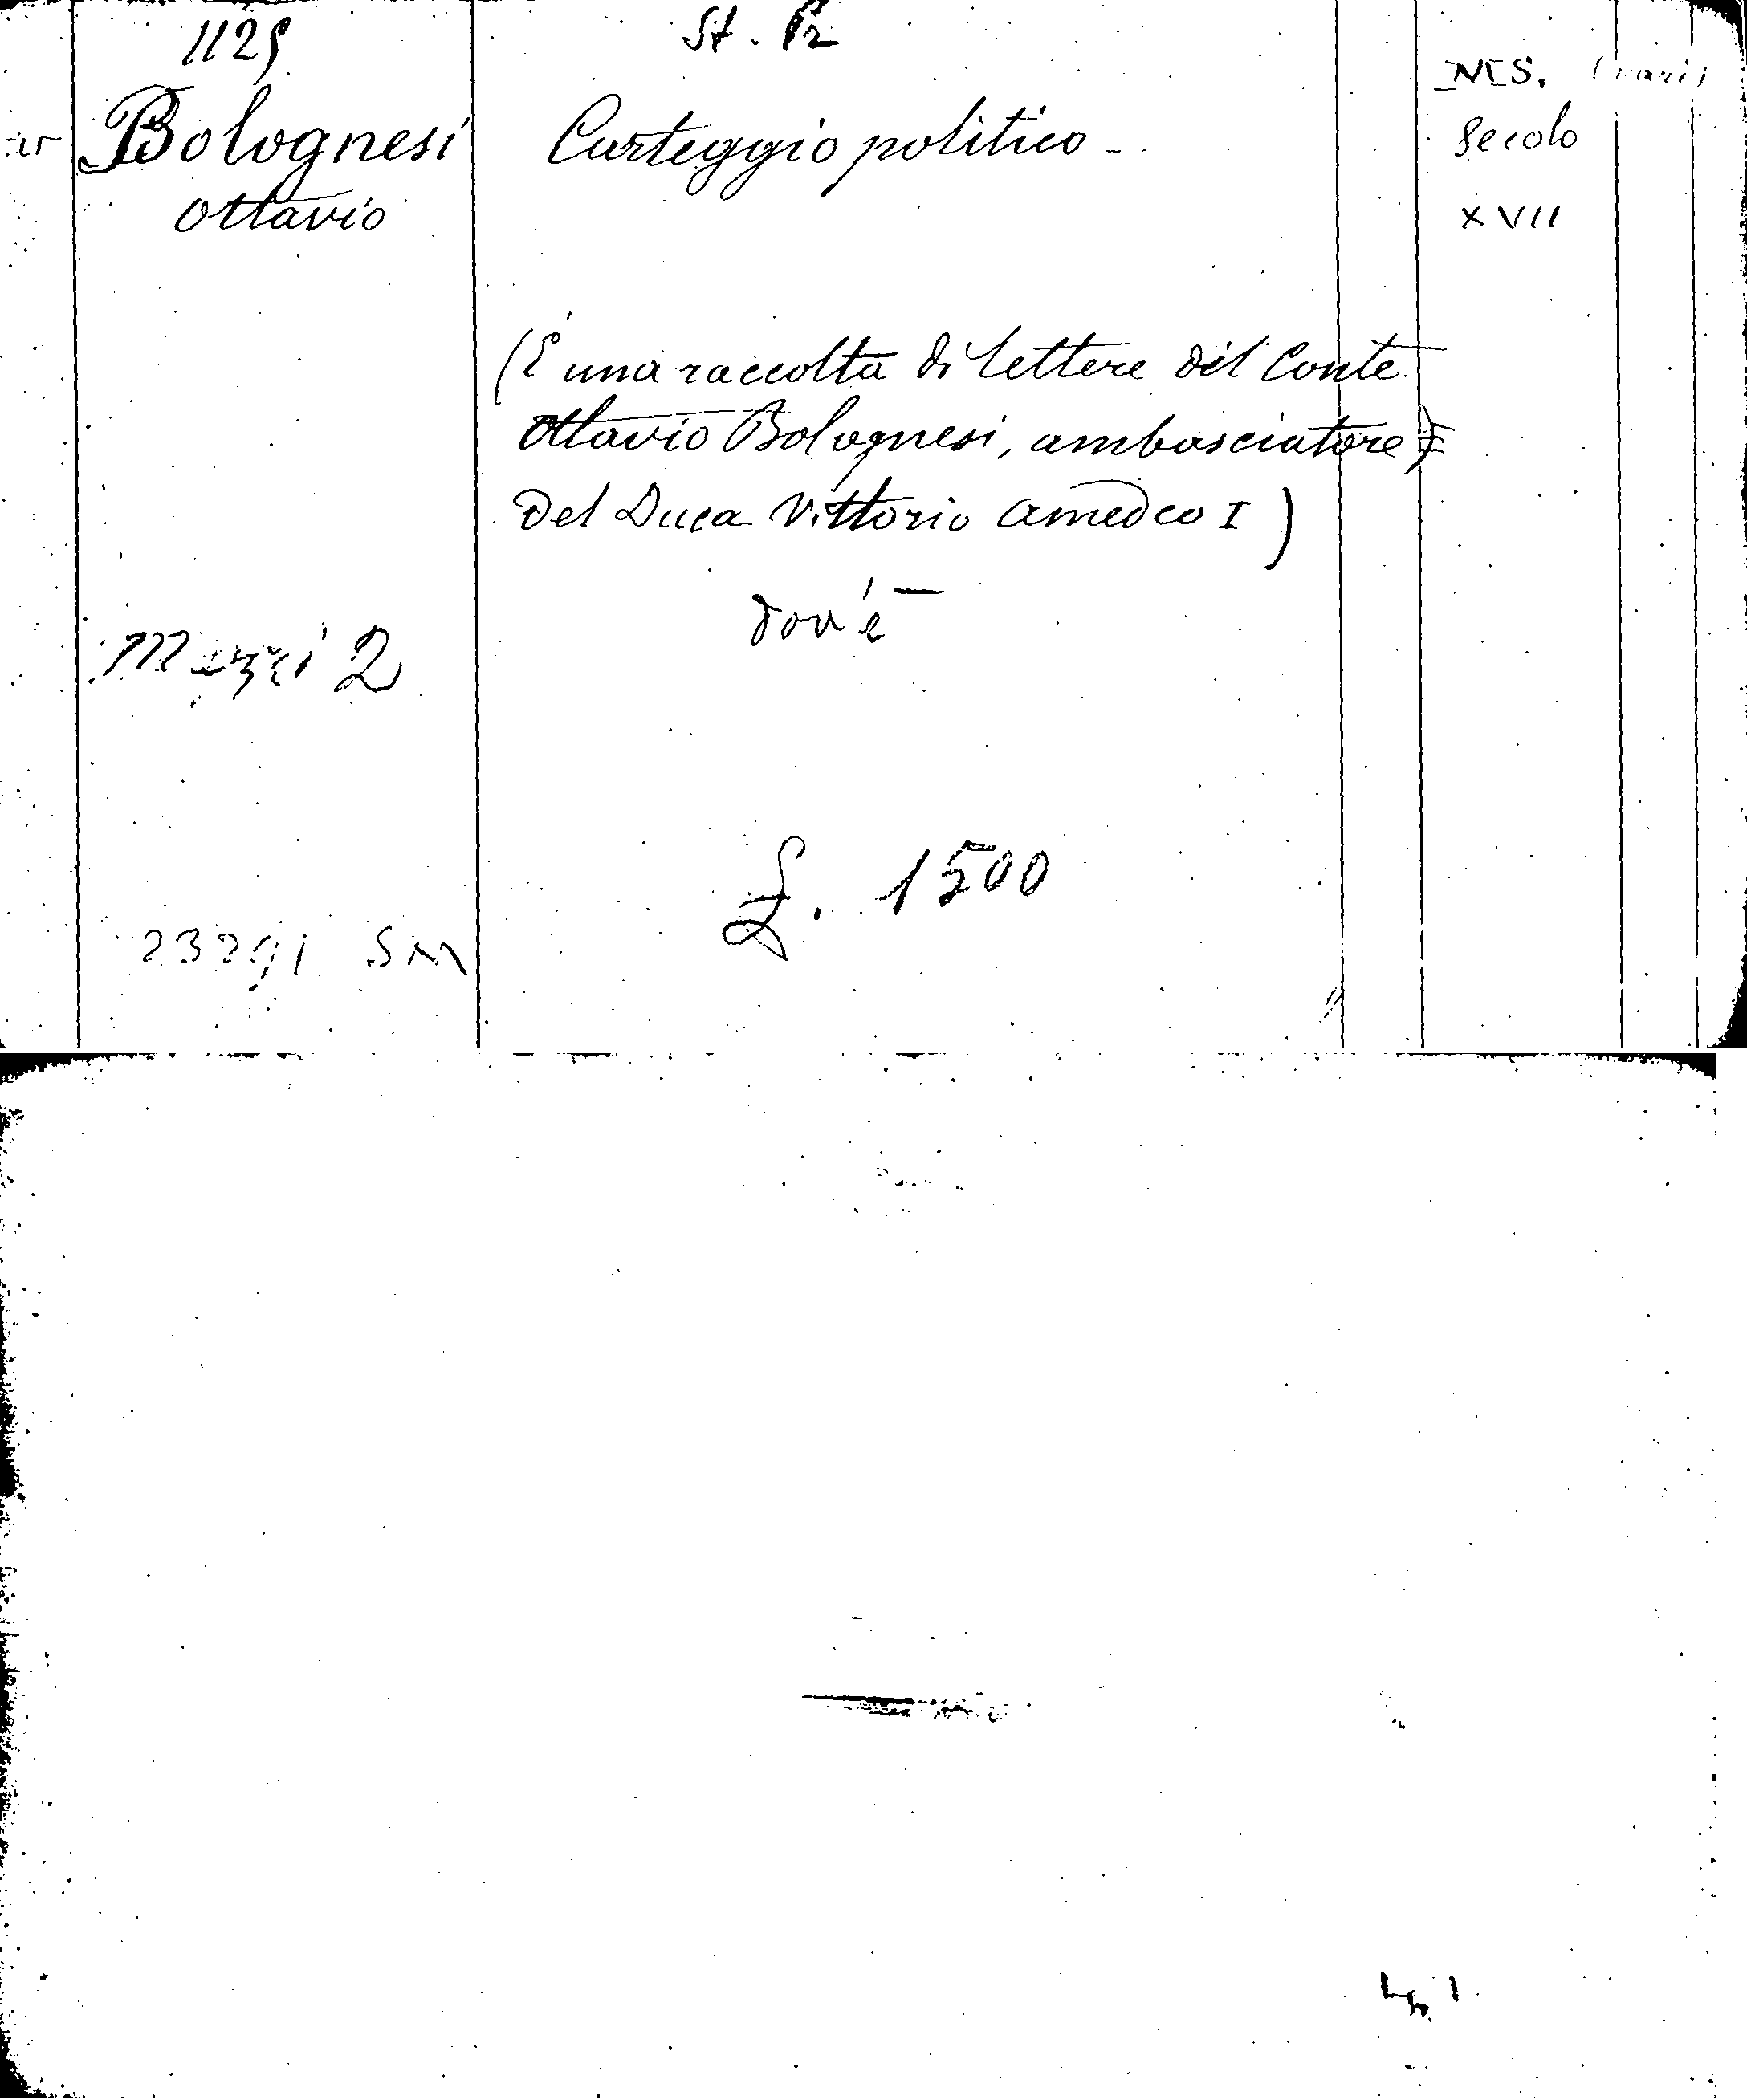 1125
St. Pr
MS. (vari)
Bolognesi
Carteggio politico -
Secolo
Ottavio
XVII
(È una raccolta di lettere del Conte
Ottavio Bolognesi, ambasciatore)
Del Duca Vittorio Amedeo I)
dov'è -
Mazzi 2
£. 1500
23291 SM